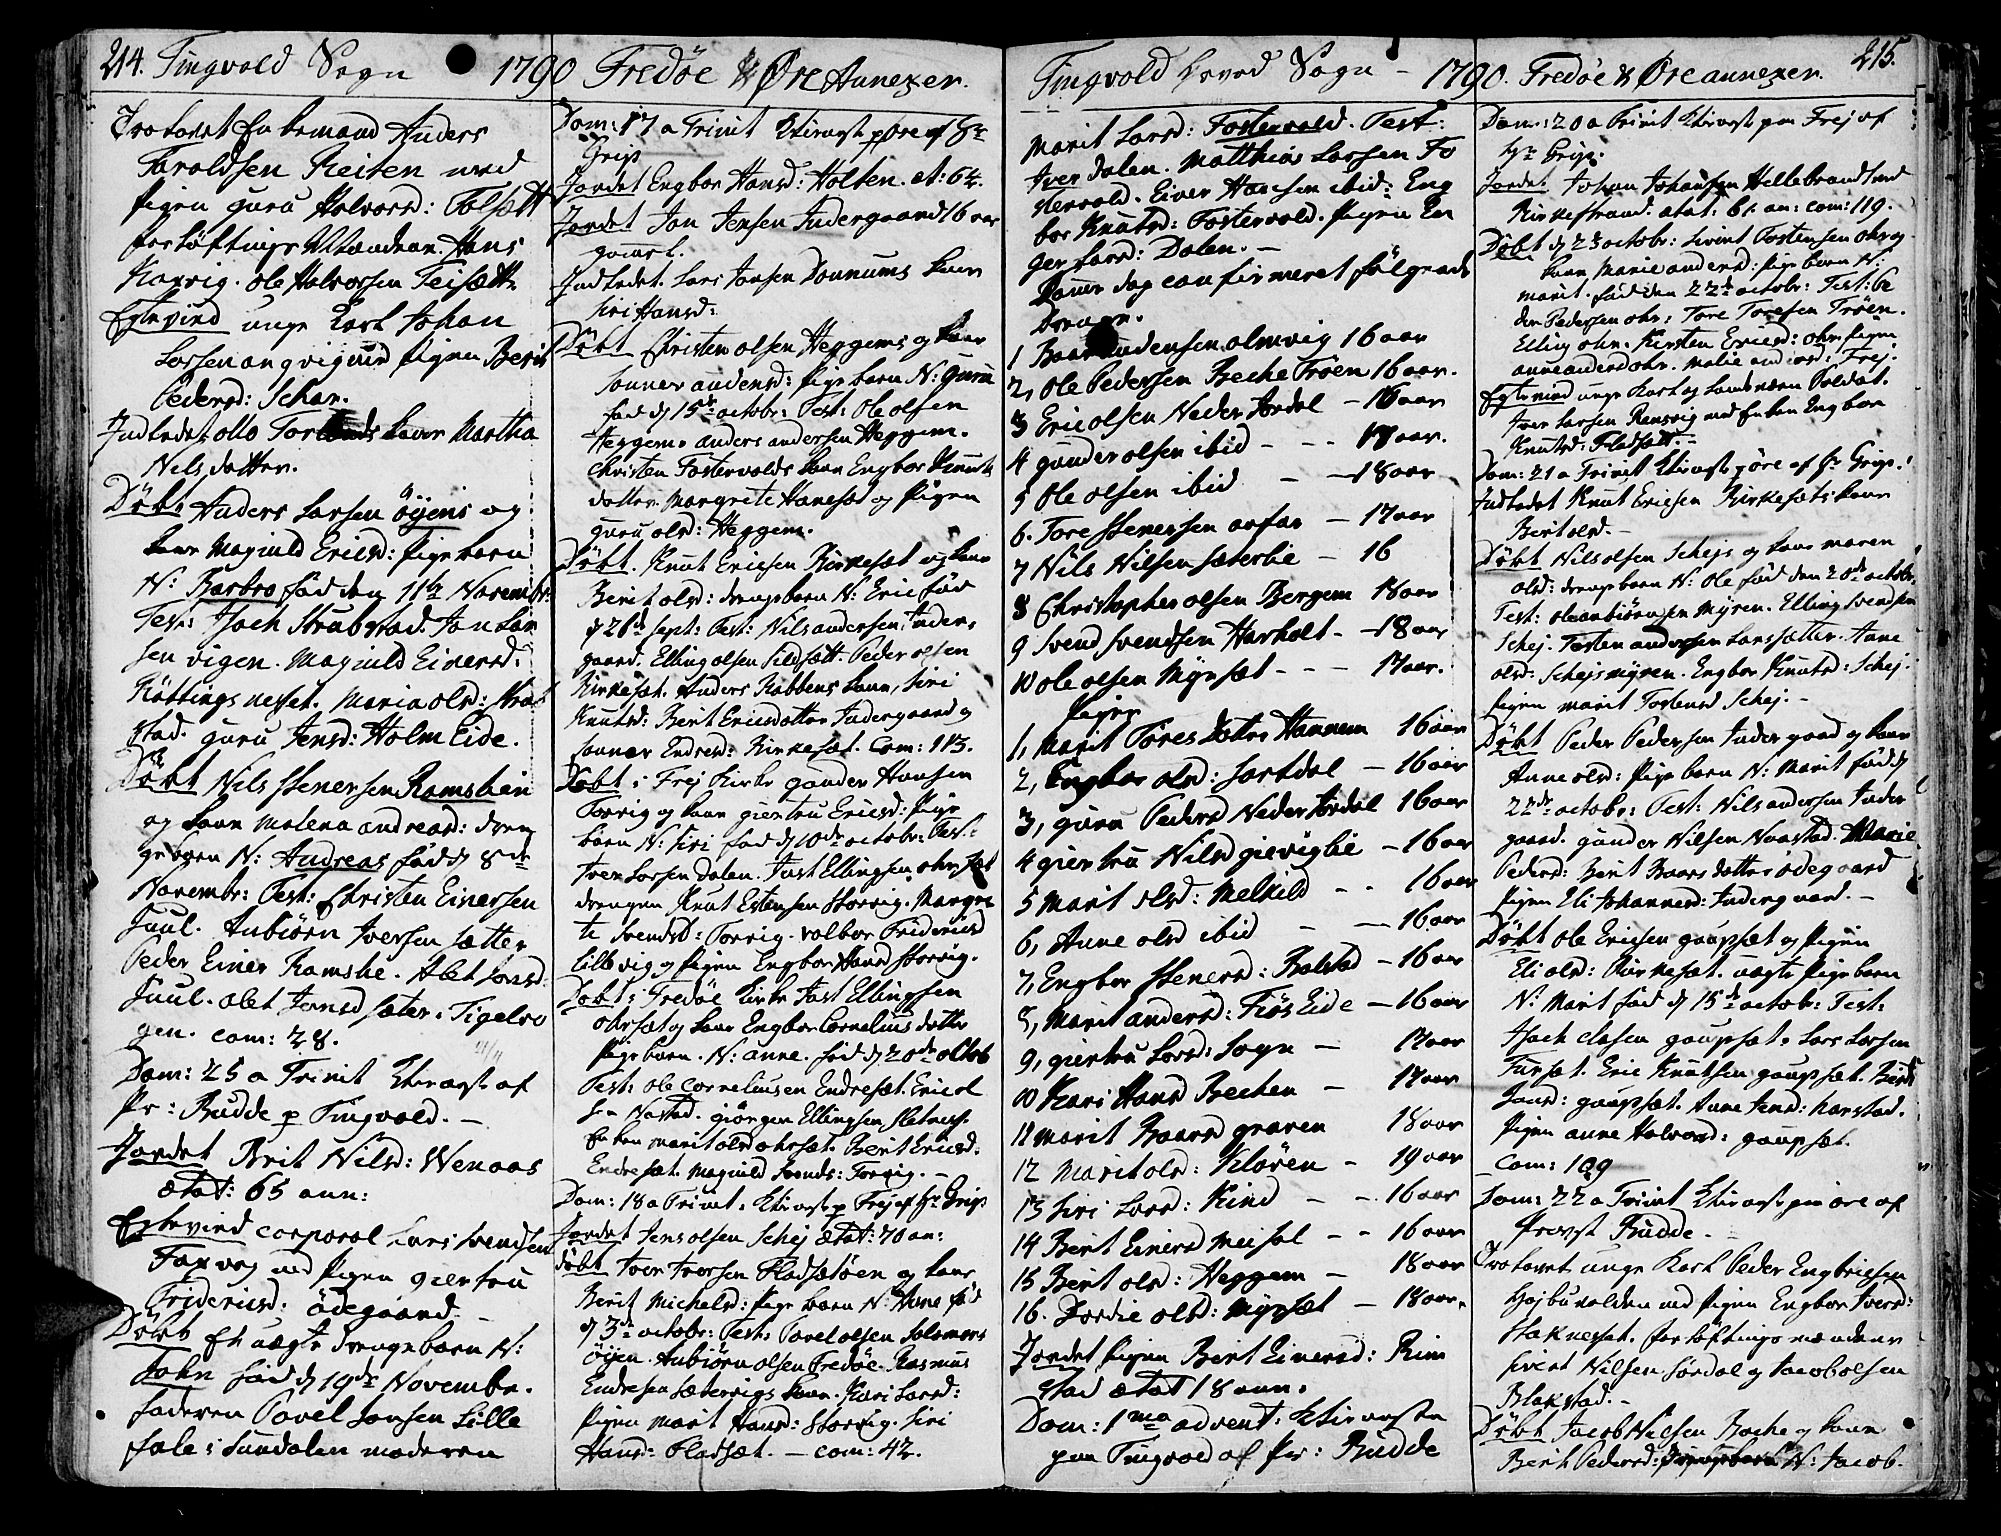 214. Tingvold Sogn 1790 Fredöe & Öre Annexer.
Trolovet Enkemand Anders
Taraldsen Reiten med
Pigen Guru Halvorsd:
forlöftnings Mændene Hans
Kaxvig. Ole Halvorsen Teisætt
Egtevied unge Karl Johan
Larsen angvig med Pigen Berit
Peders: Schar.
Indledet Otto Kone Martha
Nils datter.
Döbt Anders Larsen öyens og
Kone Magnild Ericsd: Pige barn
N: Barbro föd den 11te Novembr:
Test: Isach Strubstad. Jon Lar
sen vigen. Magnild Eidersd:
Röttingsnesset. Maria olsd: Strub
stad. Guru Jensd: Holm Eide.
Döbt Nils Stenersen Ramsbien
og Kone Malena andreasd: dren
ge barn N: Andreas föd d 8de
Novembr: Test: Christen Einersen
Juul. Anbiörn Iversen Sætter
Peder Einer Ramsbe. Alet Larsd:
Juul. olet Jonsd Sæter. Tigelvo
gen. com: 28.
Dom: 25 a Trinit Thienest af
Pr: Budde p Tingvold. –
Jordet Brit Nilsd: Wenaas
ætat: 65 ann:
Egtevied corporal Lars Svendsen
Faxvog med Pigen giertru
Fridericsd: ödegaard. –
Döbt Et uægte drenge barn N:
John föd d 19de Novembr.
faderen Povel Jonsen Lille
fale i Sundalen moderen
Dom: 17 a Trinit Thienest p Öre af Hr
Grip
Jordet Engbor Hansd: Holten. æt: 64.
Jordet Jon Jensen Indergaard 16 aar
gammel.
Indledet. Lars Jonsen Donnums Kone
Siri Hansd:
Döbt Christen olsen Heggems og Kone
Sonner audensd: Pige barn N: Guru
föd d 15de octobr: Test: Ole olsen
Heggem anders andersen Heggem.
Christen Fostervolds Kone Engbor Knuts
datter Margrete Hanesæt og Pigen
guru olsd: Heggem.
Döbt. Knut Ericsen Kirkesæt og Kone
Berit olsd: drenge barn N: Eric föd
d 26de Sept: Test: Nils andersen Inder,
gaard. Elling olsen Sildsætt. Peder olsen
Kirkesæt. Anders Robbens Kone, Siri
Knutsd: Berit Ericsdatter Indergaard og
Sonner Endresd: Kirkesæt. Com: 113.
Döbt i Frej Kirke gunder Hansen
Torvig og Kone giertru Ericsd: Pige
barn N: Siri föd d 10de octobr: Test:
Iver Larsen Dalen. Jost Ellingsen ohrsæt
drengen Knut Estensen Storvig. Margre
te Svendsd: Torvig. valbor Fridericsd
Lillevig og Pigen Engbor Hansd Storvig.
Döbt i Fredöe Kirke Jost Ellingsen
ohrsæt og Kone Engbor Cornelius datter
Pige barn. N: anne. föd d 20de octob
Test: Ole Corneliusen Endresæt. Eric ol
sen Nastad. giörgen Ellingsen
Enken marit olsd ohrsæt. Berit Ericsd.
Endresæt. Magnild Svends: Torvig. –
Dom: 18 a Trinit: Thienest p Frej af Hr Grip
Jordet Jens olsen Schej ætat: 70 an:
Döbt Iver Iversen Fladsetöen og Kone
Berit Michelsd: Pige barn N: Anne föd
d 3de octobr: Test: Povel olsen Salomons
öyen. Anbiörn olsen Fredöe. Rasmus
Endresen Sætervigs Kone. Kari Larsd:
Pigen Marit Hansd: Storvig. Siri
Hansd: Fladsæt. – com: 42.
Tingvold Hoved Sogn – 1790. Fredöe & Öre annexer. 215.
Marit Larsd: Fostervold. Test:
Iver Dalen. Matthias Larsen Fo
stervold. Eiver Hansen ibid: Eng
bor Knutsd: Fostervold. Pigen In
ger Larsd: Dalen. –
Samme dag confirmeret fölgende
Drenge.
1 Baar Audensen almvig 16 aar
2, Ole Pedersen Beche Tröen 16 aar.
3 Eric olsen Neder Jordal – 16 aar
4 gunder olsen ibid – – – 17 aar.
5 Ole olsen ibid – – 18 aar
6. Tore Stenersen – 17 aar
7 Nils Nilsen Sæterbie – 16
8 Christopher olsen Bergem 18 aar
9 Svend Svendsen Harholt – 18 aar
10 Ole olsen Myrsæt – – – 17 aar.
Piger
1, Marit Tores Datter Hannem 16 aar
2, Engbor olsd: Jordal – 16 aar
3, guru Pedersd Neder Jordal 16 aar
4 giertru Nilsd gievigbie – 16 aar
5 Marit olsd: Melkild – – 16 aar
6, Anne olsd ibid – – 16 aar
7, Engbor Stenersd: Bolstad – 16 aar
8, Marit andersd: Fiös Eide – 16 aar
9, giertru Larsd: Sogn – 17 aar
10 Kari Hansd Bechen – 17 aar
11 Marit Baarsd graven 18 aar
12 Marit olsd: Klören – 19 aar
13 Siri Larsd: Rind – – 16 aar
14 Berit Einersd Meisal – – 16 aar
15 Berit olsd: Heggem – 18 aar
16. Dordie olsd: Myrsæt – 18 aar.
Jordet Pigen Berit Einersd: Rim
stad ætat 18 ann.
Dom: 1ma advent: Thieneste
paa Tingvold af Pr: Budde
Dom: 20 a Trinit Thienest paa Frej af
Hr Grip.
Jordet Johan Johansen Hillebrandt ved
Kirkestrand. ætat: 61. an: com: 119.
Döbt d 23 octobr: Sivert Tostensen ohr og
Kone Marie andersd: Pige barn N:
Marit. föd den 22de octobr: Test: Pe
der Pedersen ohr: Tore Toresen Tröen.
Elling ohr. Kirsten Ericsd: ohr. Pigen
anne andersd ohr. Malie andersd: Frej.
Egtevied unge Karl og Landværn Soldat.
Iver Larsen Ransvig med Enken Engbor
Knutsd: Fladsætt. –
Dom: 21 a Trinit Thienest p öre af Hr Grip.
Indledet Knut Ericsen Kirkesæts Kone
Berit olsd. –
Döbt Nils olsen Schejs og Kone maren
olsd: drenge barn N: Ole föd den 20de octobr.
Test: Ole anbiörnsen Myren. Elling Svendsen
Schej. Tosten andersen Larssætter. Anne
olsd: Schejsmyren. Engbor Knutsd: Schej.
Pigen Marit Tostensd Schej. –
Döbt Peder Pedersen Indergaard og Kone
Anne olsd: Pige barn N: Marit föd d
22de octobr: Test: Nils andersen Inder
gaard. gunder Nilsen Naastad. Marie
Pedersd: Berit Baars datter ödegaard
Pigen Eli Johannesd: Indergaard. –
Döbt Ole Ericsen gaupsæt og Pigen
Eli olsd: Kirkesæt. uægte Pige barn
N: Marit föd d 15de octobr: Test:
Isach Olesen gaupsæt. Lars Larsen
Fursæt. Eric Knutsen gaupsæt. Berit
Jonsd: gaupsæt. Anne Jensd: Karstad.
Pigen anne Halvorsd: gaupsæt.
Com: 109
Dom: 22 a Trinit Thienest paa öre af
Provst Budde. –
Trolovet unge Karl Peder Engbricsen
Højbuvolden med Pigen Engbor Iversd:
Staknesset. forlöftnings mændene
Sivert Nilsen Jordal og Jacob olsen
Blakstad. –
Döbt Jacob Nilsen Boche og Kone
Berit Pedersd: N: Jacob.